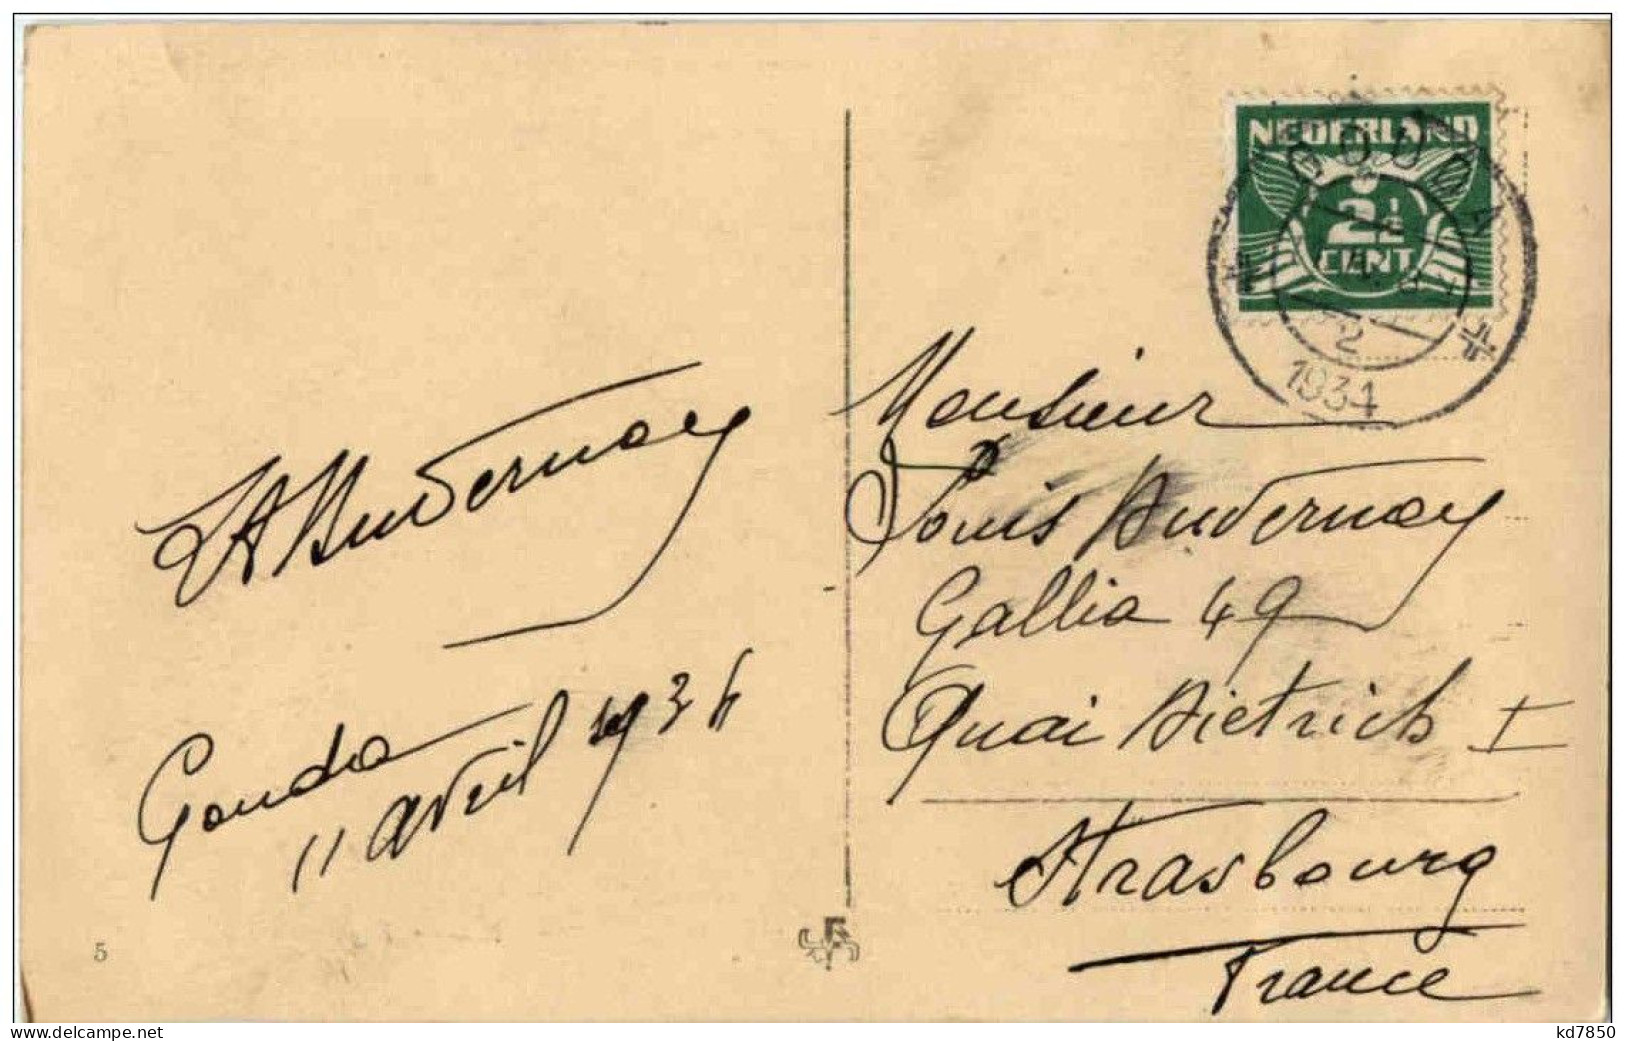 NEDERLAND
2½
CENT
GOUDA
2
1934
LA Audernay
Gouda
11 avril 1934
Monsieur
Louis Audernay
Gallia 49
Quai Dietrich I
Strasbourg
France
5
www.delcampe.net
kd7850